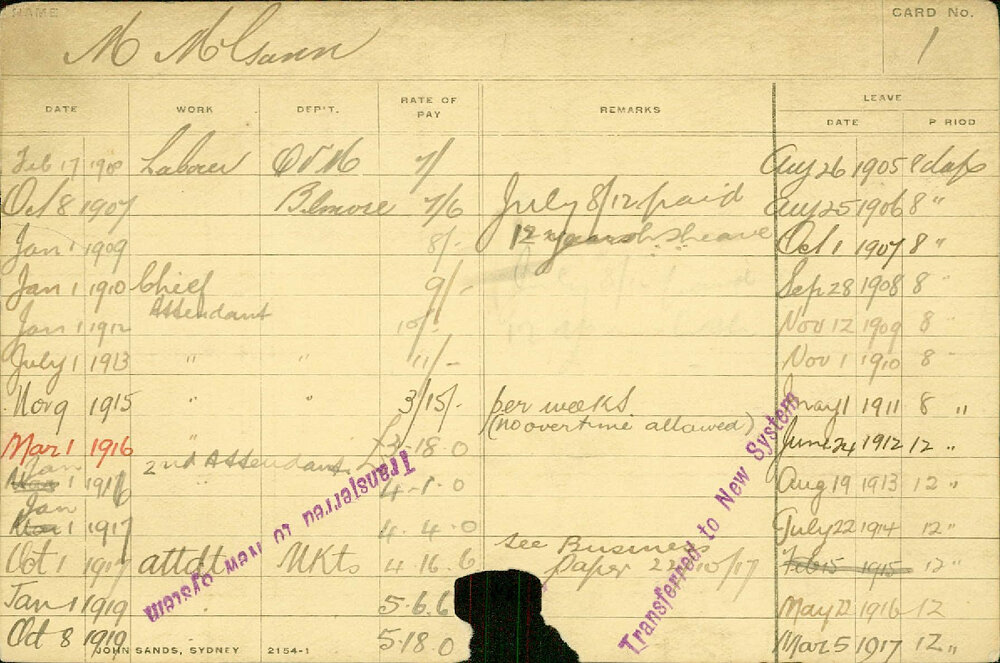 NAME
CARD No.
M McGann
1
DATE WORK DEP'T. RATE OF PAY REMARKS LEAVE
DATE PERIOD
Feb 17 1908 Labour 7/ Aug 26 1905 8 days
Oct 8 1907 Belmore 7/6 July 8/12 paid Aug 25 1906 8 "
Jan 1 1909 8/- 12 years Oct 1 1907 8 "
Jan 1 1910 Chief 9/- Sep 28 1908 8 "
Attendant
Jan 1 1912 10/- Nov 12 1909 8 "
July 1 1913 " " 11/- Nov 1 1910 8 "
Nov 9 1915 " " 3/15/- per weeks May 1 1911 8 "
(no overtime allowed)
Mar 1 1916 " £2-18-0 June 24 1912 12 "
Jan
1 1916 2nd Attendant 4-1-0 Aug 19 1913 12 "
Jan
1 1917 4-4-0 July 22 1914 12 "
Oct 1 1917 attdt Mkts 4 16.6 see Business Feb 15 1915 12 "
Paper 22/10/17
Jan 1 1919 5-6.6 May 22 1916 12
Oct 8 1919 5-18.0 Mar 5 1917 12 "
Transferred to New System
Transferred to New System
JOHN SANDS, SYDNEY 2154-1